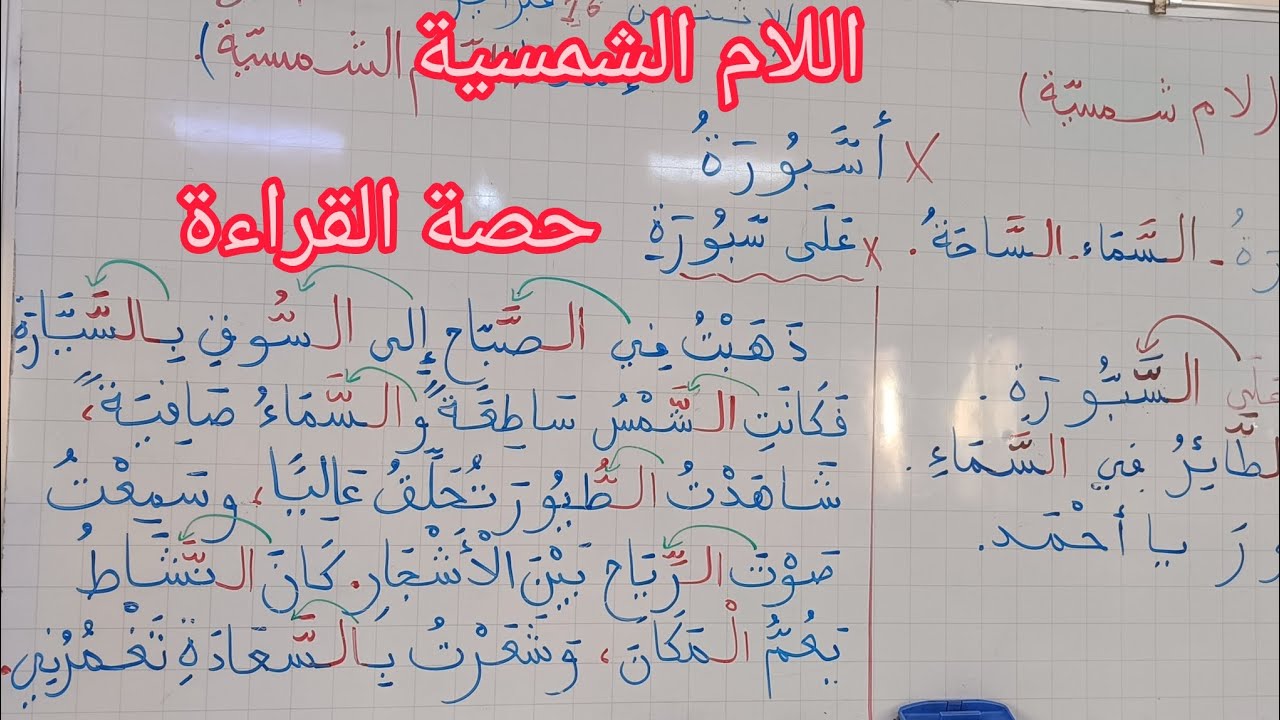 الاثنين 16 فبراير
اللام الشمسية
الشمسيّة).
(لام شمسيّة)
X أسَّبُورَةُ
حصة القراءة
X عَلَى سَّبُورَةِ
السَّمَاء - السَّاحَةُ.
ذَهَبْتُ فِي الصَّبَاحِ إِلى السُّوقِ بِالسَّيَّارَةِ
فَكَانَتِ الشَّمْسُ سَاطِعَةً وَالسَّمَاءُ صَافِيَةً،
شَاهَدْتُ الطُّيُورَ تُحَلِّقُ عَالِيًا، وسَمِعْتُ
صَوْتَ الرِّيَاحِ بَيْنَ الْأَشْجَارِ. كَانَ النَّشَاطُ
يَعُمُّ الْمَكَانَ، وَشَعَرْتُ بِالسَّعَادَةِ تَغْمُرُنِي.
عَلَى السَّبُّورَةِ.
الطَّائِرُ فِي السَّمَاءِ.
يا أحْمَد.